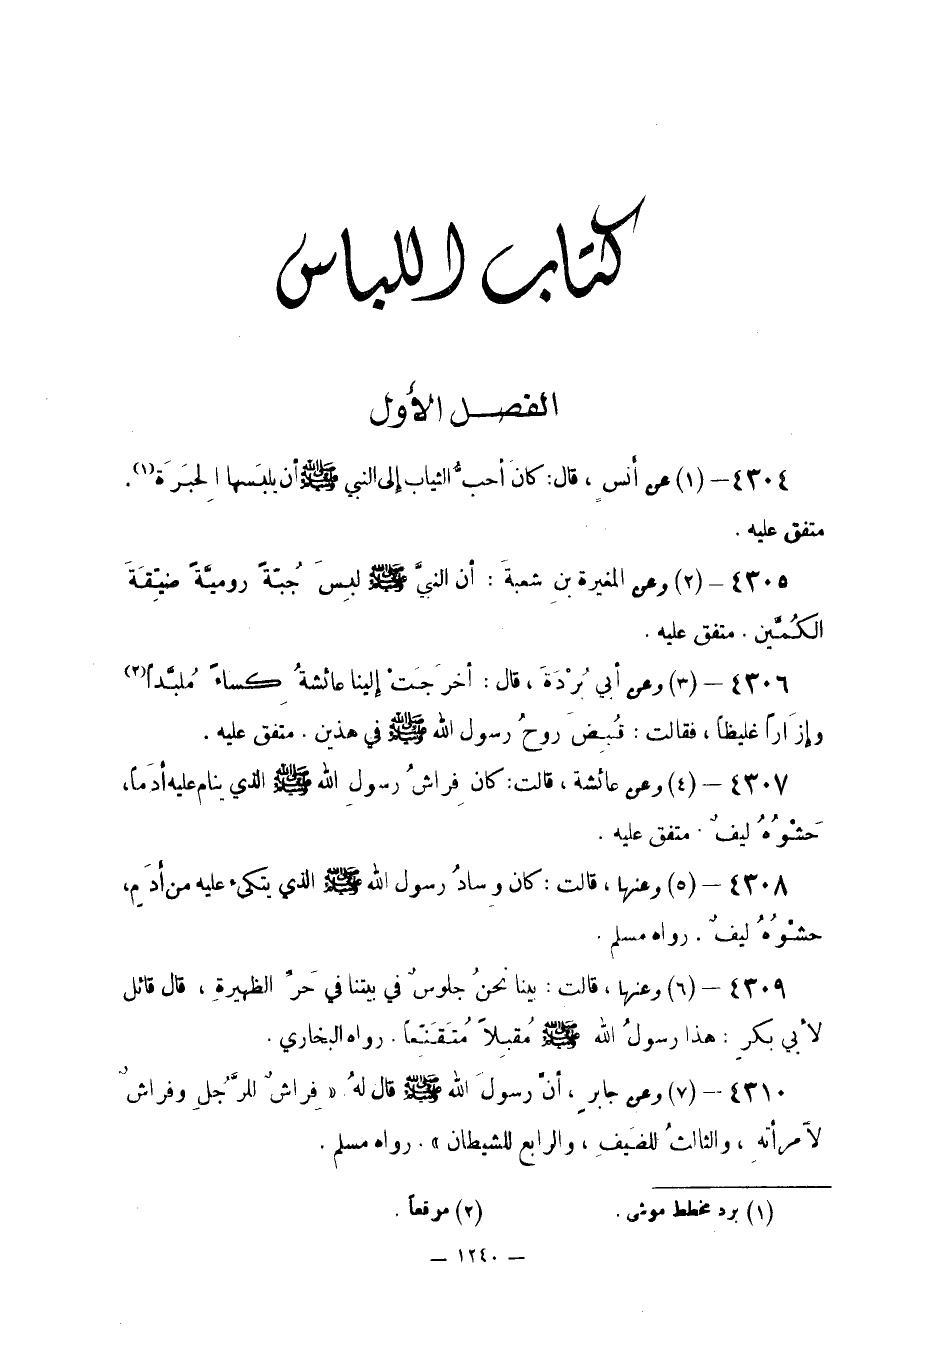 كتاب اللباس
الفصل الأول
٤٣٠٤ – (١) عن أنسٍ ، قال: كانَ أحبُّ الثياب إلى النبي ﷺ أن يلبَسها الحِبَرَة(١).
متفق عليه .
٤٣٠٥ – (٢) وعن المغيرة بنِ شعبةَ : أن النبيَّ ﷺ لبِسَ جُبّةً روميَّةً ضيّقةَ
الكُمَّين . متفق عليه .
٤٣٠٦ – (٣) وعن أبي بُرْدَةَ ، قال : أخرَجَتْ إلينا عائشةُ كِساءً مُلبَّداً(٢)
وإزَاراً غليظاً ، فقالت : قُبِضَ روحُ رسول الله ﷺ في هذين . متفق عليه .
٤٣٠٧ – (٤) وعن عائشة ، قالت: كان فِراشُ رسولِ الله ﷺ الذي ينام عليه أدَماً،
حَشْوُهُ ليفٌ . متفق عليه .
٤٣٠٨ – (٥) وعنها ، قالت : كان وِسادُ رسول الله ﷺ الذي يتكىء عليه من أدَمٍ،
حشْوُهُ ليفٌ . رواه مسلم .
٤٣٠٩ – (٦) وعنها ، قالت : بينا نحنُ جلوسٌ في بيتنا في حَرِّ الظهيرةِ ، قال قائل
لأبي بكرٍ : هذا رسولُ الله ﷺ مُقبلاً مُتَقَنّعاً . رواه البخاري .
٤٣١٠ – (٧) وعن جابرٍ ، أنَّ رسولَ الله ﷺ قال لهُ « فِراشٌ للرَّجُلِ وفراشٌ
لامرأتهِ ، والثالثُ للضَيفِ ، والرابع للشيطان » . رواه مسلم .
(١) برد مخطط موشى . (٢) موقعاً .
– ١٢٤٠ –